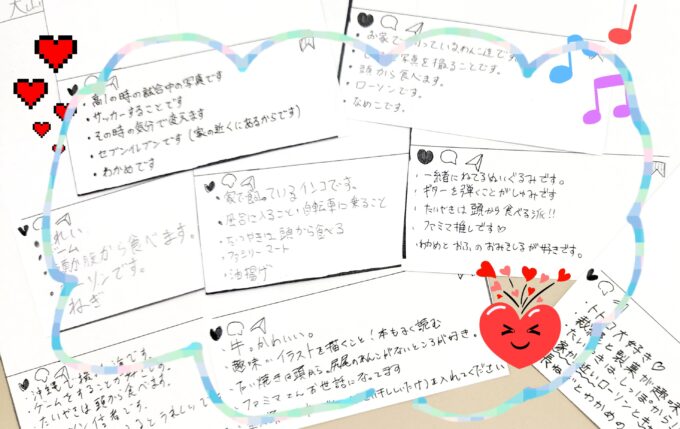 大山
・高1の時の試合中の写真です
・サッカーすることです
・その時の気分で変えます
・セブンイレブンです(家の近くにあるからです)
・わかめです
・お家で っているわんこ達です。
写真を撮ることです。
頭から食べます。
・ローソンです。
・なめこです。
・家で飼っているインコです。
・風呂に入ること、自転車に乗ること
・たいやきは頭から食べる
・ファミリーマート
・油揚げ
・一緒にねてるぬいぐるみです。
・ギターを弾くことがしゅみです。
・たいやきは頭から食べる派!!
・ファミマ推しです♡
・わかめとおふのおみそしるが好きです。
れい
ーム
頭か腹から食べます。
ーソンです。
ねぎ
・牛。かわいい。
・趣味はイラストを描くこと!本もよく読む
・たい焼きは頭から。尻尾のあんこがないところが好き。
・ファミマさんお世話になってます
(干ししいたけ)も入れてください
沖縄で撮った
ゲームをすること
たいやきは頭から食べます。
ソン信者です。
・トトロ大好き♡
・裁縫と製菓が趣味
・たいやきはしっぽから